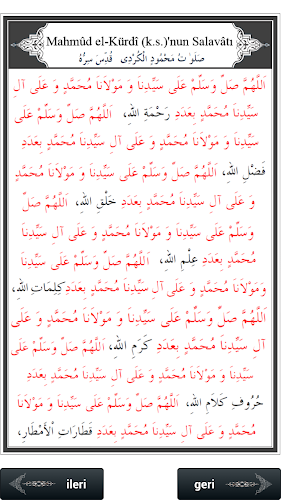 Mahmûd el-Kürdî (k.s.)'nun Salavâtı
صَلَوٰتُ مَحْمُودِ الْكُرْدِى قُدِّسَ سِرُّهُ
اَللّٰهُمَّ صَلِّ وَسَلِّمْ عَلَى سَيِّدِنَا وَ مَوْلاَنَا مُحَمَّدٍ وَ عَلَى آلِ
سَيِّدِنَا مُحَمَّدٍ بِعَدَدِ رَحْمَةِ اللهِ، اَللّٰهُمَّ صَلِّ وَسَلِّمْ عَلَى
سَيِّدِنَا وَ مَوْلاَنَا مُحَمَّدٍ وَ عَلَى آلِ سَيِّدِنَا مُحَمَّدٍ بِعَدَدِ
فَضْلِ اللهِ، اَللّٰهُمَّ صَلِّ وَسَلِّمْ عَلَى سَيِّدِنَا وَ مَوْلاَنَا مُحَمَّدٍ
وَ عَلَى آلِ سَيِّدِنَا مُحَمَّدٍ بِعَدَدِ خَلْقِ اللهِ، اَللّٰهُمَّ صَلِّ
وَسَلِّمْ عَلَى سَيِّدِنَا وَ مَوْلاَنَا مُحَمَّدٍ وَ عَلَى آلِ سَيِّدِنَا
مُحَمَّدٍ بِعَدَدِ عِلْمِ اللهِ، اَللّٰهُمَّ صَلِّ وَسَلِّمْ عَلَى سَيِّدِنَا
وَمَوْلاَنَا مُحَمَّدٍ وَ عَلَى آلِ سَيِّدِنَا مُحَمَّدٍ بِعَدَدِ كَلِمَاتِ اللهِ،
اَللّٰهُمَّ صَلِّ وَسَلِّمْ عَلَى سَيِّدِنَا وَ مَوْلاَنَا مُحَمَّدٍ وَ عَلَى
آلِ سَيِّدِنَا مُحَمَّدٍ بِعَدَدِ كَرَمِ اللهِ، اَللّٰهُمَّ صَلِّ وَسَلِّمْ عَلَى
سَيِّدِنَا وَ مَوْلاَنَا مُحَمَّدٍ وَ عَلَى آلِ سَيِّدِنَا مُحَمَّدٍ بِعَدَدِ
حُرُوفِ كَلاَمِ اللهِ، اَللّٰهُمَّ صَلِّ وَسَلِّمْ عَلَى سَيِّدِنَا وَ مَوْلاَنَا
مُحَمَّدٍ وَ عَلَى آلِ سَيِّدِنَا مُحَمَّدٍ بِعَدَدِ قَطَارَاتِ الْأَمْطَارِ،
ileri
geri